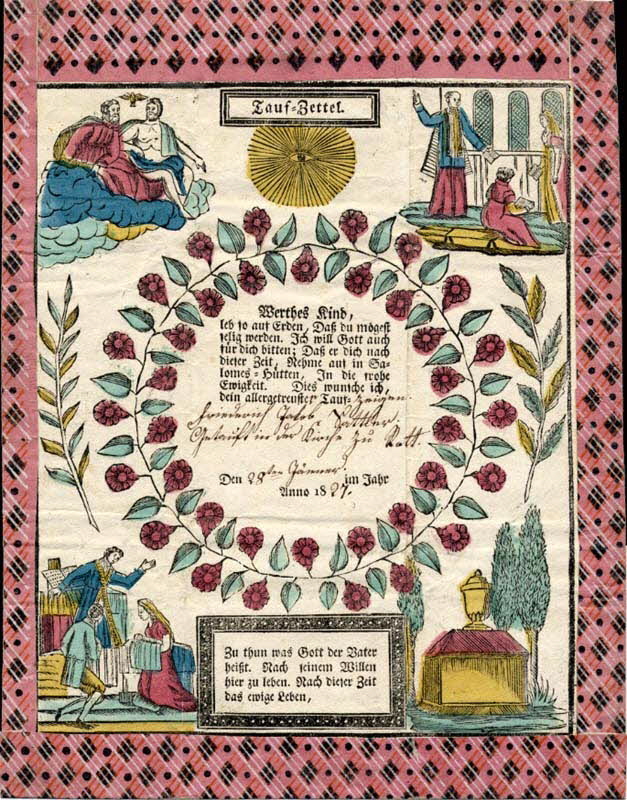 Tauf-Zettel.
Werthes Kind,
leb so auf Erden, Daß du mögest
selig werden. Ich will Gott auch
für dich bitten; Daß er dich nach
dieser Zeit, Nehme auf in Sa-
lomes-Hütten, In die frohe
Ewigkeit. Dies wünsche ich,
dein allergetreuster Tauf-zeigen
Friederich Jakob Sattler
Getauft in der Kirche zu
Den 28ten Jänner im Jahr
Anno 1827.
Zu thun was Gott der Vater
heißt. Nach seinem Willen
hier zu leben. Nach dieser Zeit
das ewige Leben,